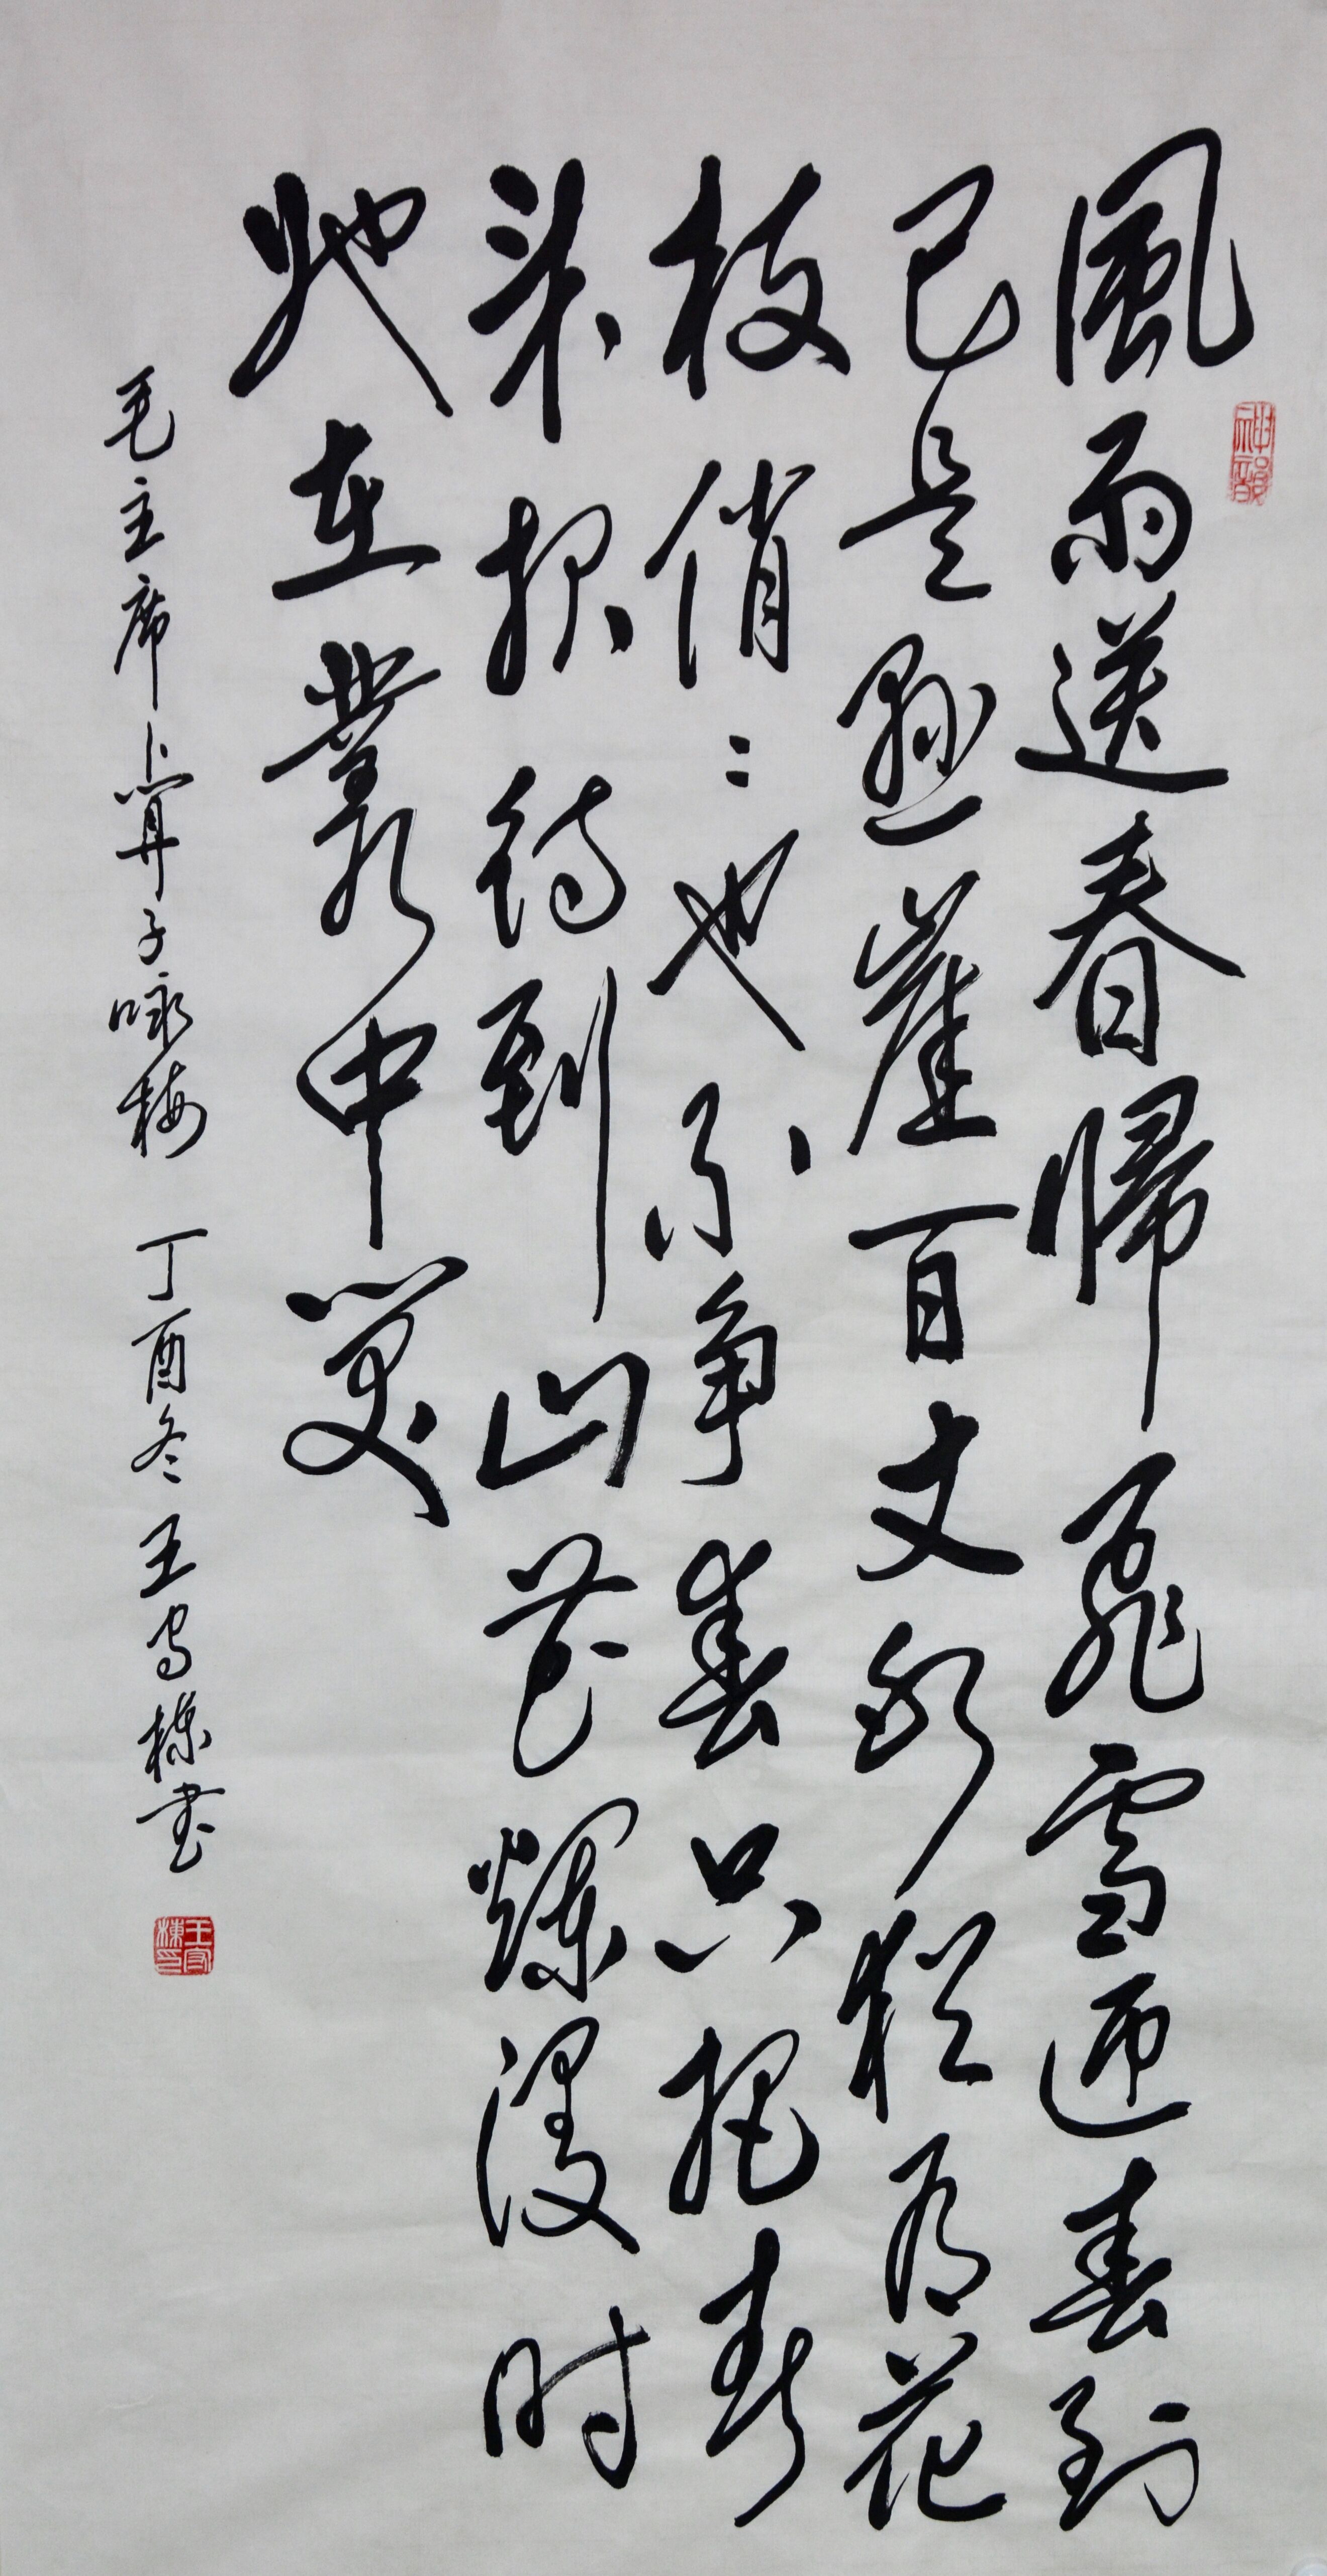 風雨送春歸飛雪迎春到
神韻
已是懸崖百丈冰猶有花
枝俏〻也不争春只把春
来报待到山花爛漫时
她在叢中笑
毛主席卜算子咏梅 丁酉冬王家栋书
王家棟印